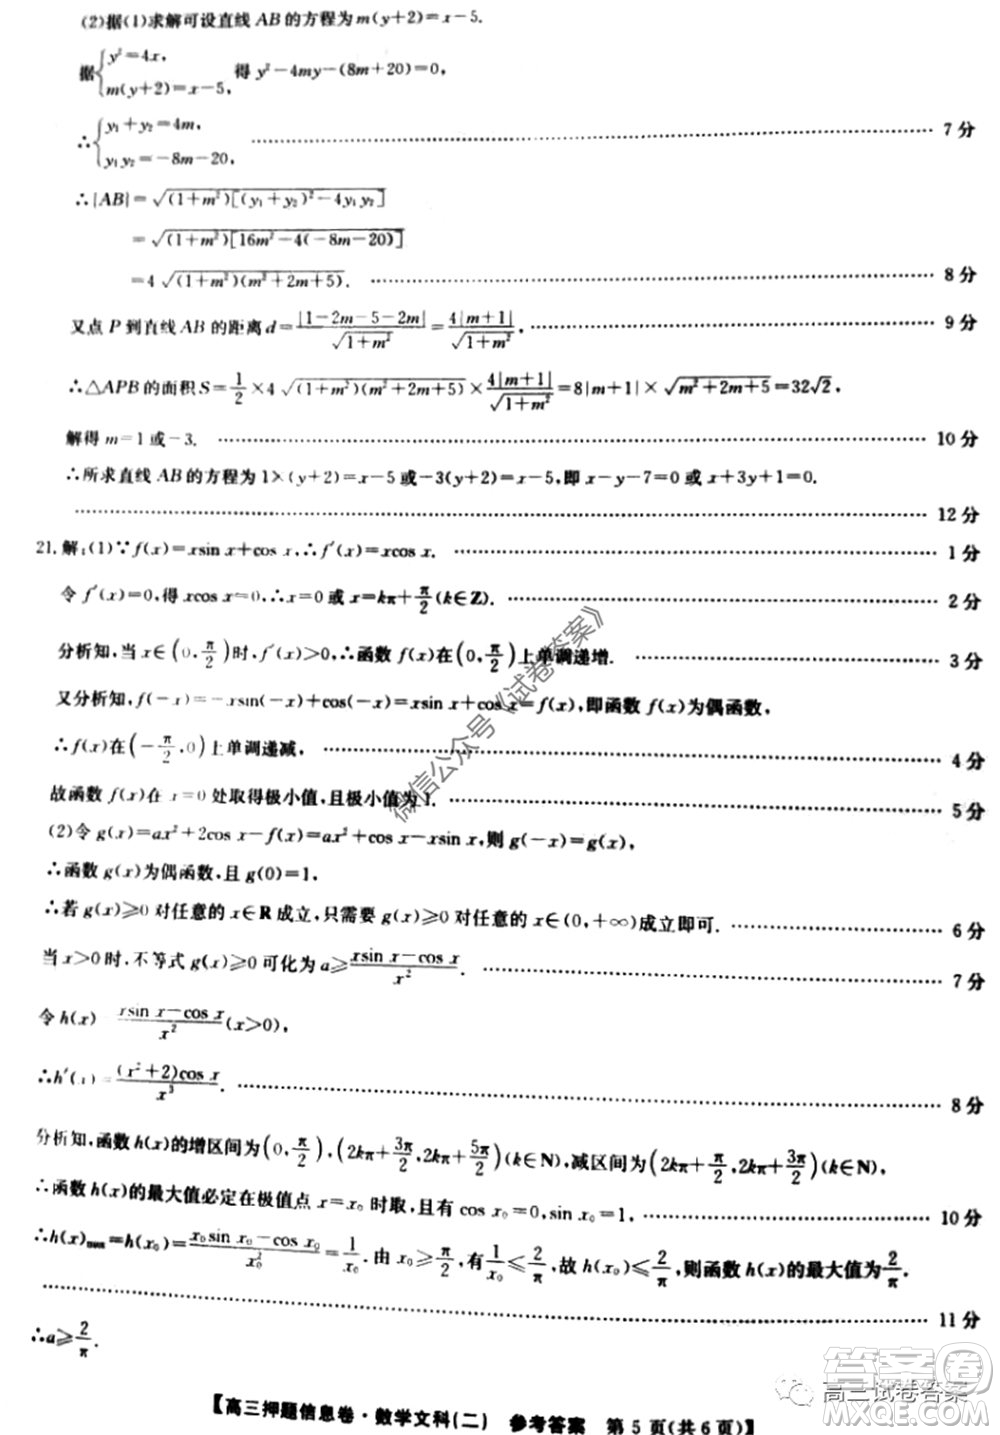 (2)据(1)求解可设直线 AB 的方程为 m(y+2)=x-5.
据{y²=4x, m(y+2)=x-5, 得 y²-4my-(8m+20)=0,
∴{y₁+y₂=4m, y₁y₂=-8m-20, 7 分
∴|AB|=√((1+m²)[(y₁+y₂)²-4y₁y₂])
=√((1+m²)[16m²-4(-8m-20)])
=4√((1+m²)(m²+2m+5)). 8 分
又点 P 到直线 AB 的距离 d=|1-2m-5-2m|/√(1+m²)=4|m+1|/√(1+m²), 9 分
∴△APB 的面积 S=1/2×4√((1+m²)(m²+2m+5))×4|m+1|/√(1+m²)=8|m+1|×√(m²+2m+5)=32√2,
解得 m=1 或-3. 10 分
∴所求直线 AB 的方程为 1×(y+2)=x-5 或-3(y+2)=x-5,即 x-y-7=0 或 x+3y+1=0.
12 分
21.解:(1)∵f(x)=xsin x+cos x,∴f′(x)=xcos x. 1 分
令 f′(x)=0,得 xcos x=0,∴x=0 或 x=kπ+π/2(k∈Z). 2 分
分析知,当 x∈(0,π/2)时,f′(x)>0,∴函数 f(x)在(0,π/2)上单调递增. 3 分
又分析知,f(-x)=-xsin(-x)+cos(-x)=xsin x+cos x=f(x),即函数 f(x)为偶函数,
∴f(x)在(-π/2,0)上单调递减, 4 分
故函数 f(x)在 x=0 处取得极小值,且极小值为 1. 5 分
(2)令 g(x)=ax²+2cos x-f(x)=ax²+cos x-xsin x,则 g(-x)=g(x),
∴函数 g(x)为偶函数,且 g(0)=1,
∴若 g(x)≥0 对任意的 x∈R 成立,只需要 g(x)≥0 对任意的 x∈(0,+∞)成立即可. 6 分
当 x>0 时,不等式 g(x)≥0 可化为 a≥(xsin x-cos x)/x². 7 分
令 h(x) (xsin x-cos x)/x²(x>0),
∴h′(x)=(x²+2)cos x/x³. 8 分
分析知,函数 h(x)的增区间为(0,π/2),(2kπ+3π/2,2kπ+5π/2)(k∈N),减区间为(2kπ+π/2,2kπ+3π/2)(k∈N),
∴函数 h(x)的最大值必定在极值点 x=x₀ 时取,且有 cos x₀=0,sin x₀=1, 10 分
∴h(x)max=h(x₀)=(x₀sin x₀-cos x₀)/x₀²=1/x₀. 由 x₀≥π/2,有 1/x₀≤2/π,故 h(x₀)≤2/π,则函数 h(x)的最大值为 2/π.
11 分
∴a≥2/π.
【高三押题信息卷·数学文科(二) 参考答案 第 5 页(共 6 页)】
微信公众号《试卷答案》
高三试卷答案
答案卷